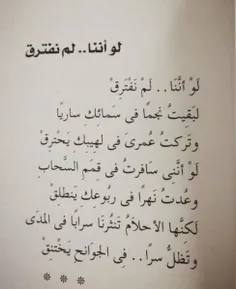 لو أننا.. لم نفترق
لَوْ أنَّنَا.. لَمْ نَفْتَرِقْ
لبَقِيتُ نجمًا فى سَمائِكِ ساريًا
وتَركتُ عُمرِىَ فى لهيبكِ يَحْترِقْ
لَوْ أنَّنِى سافرتُ فى قِمَمِ السَّحابِ
وعُدتُ نَهرًا فى ربُوعِكِ يَنطلِقْ
لَكِنَّها الأحلامُ تَنثُرنَا سرابًا فى المدَى
وتَظلُّ سرًا.. فِى الجوَانحِ يَخْتنِقْ
* * *